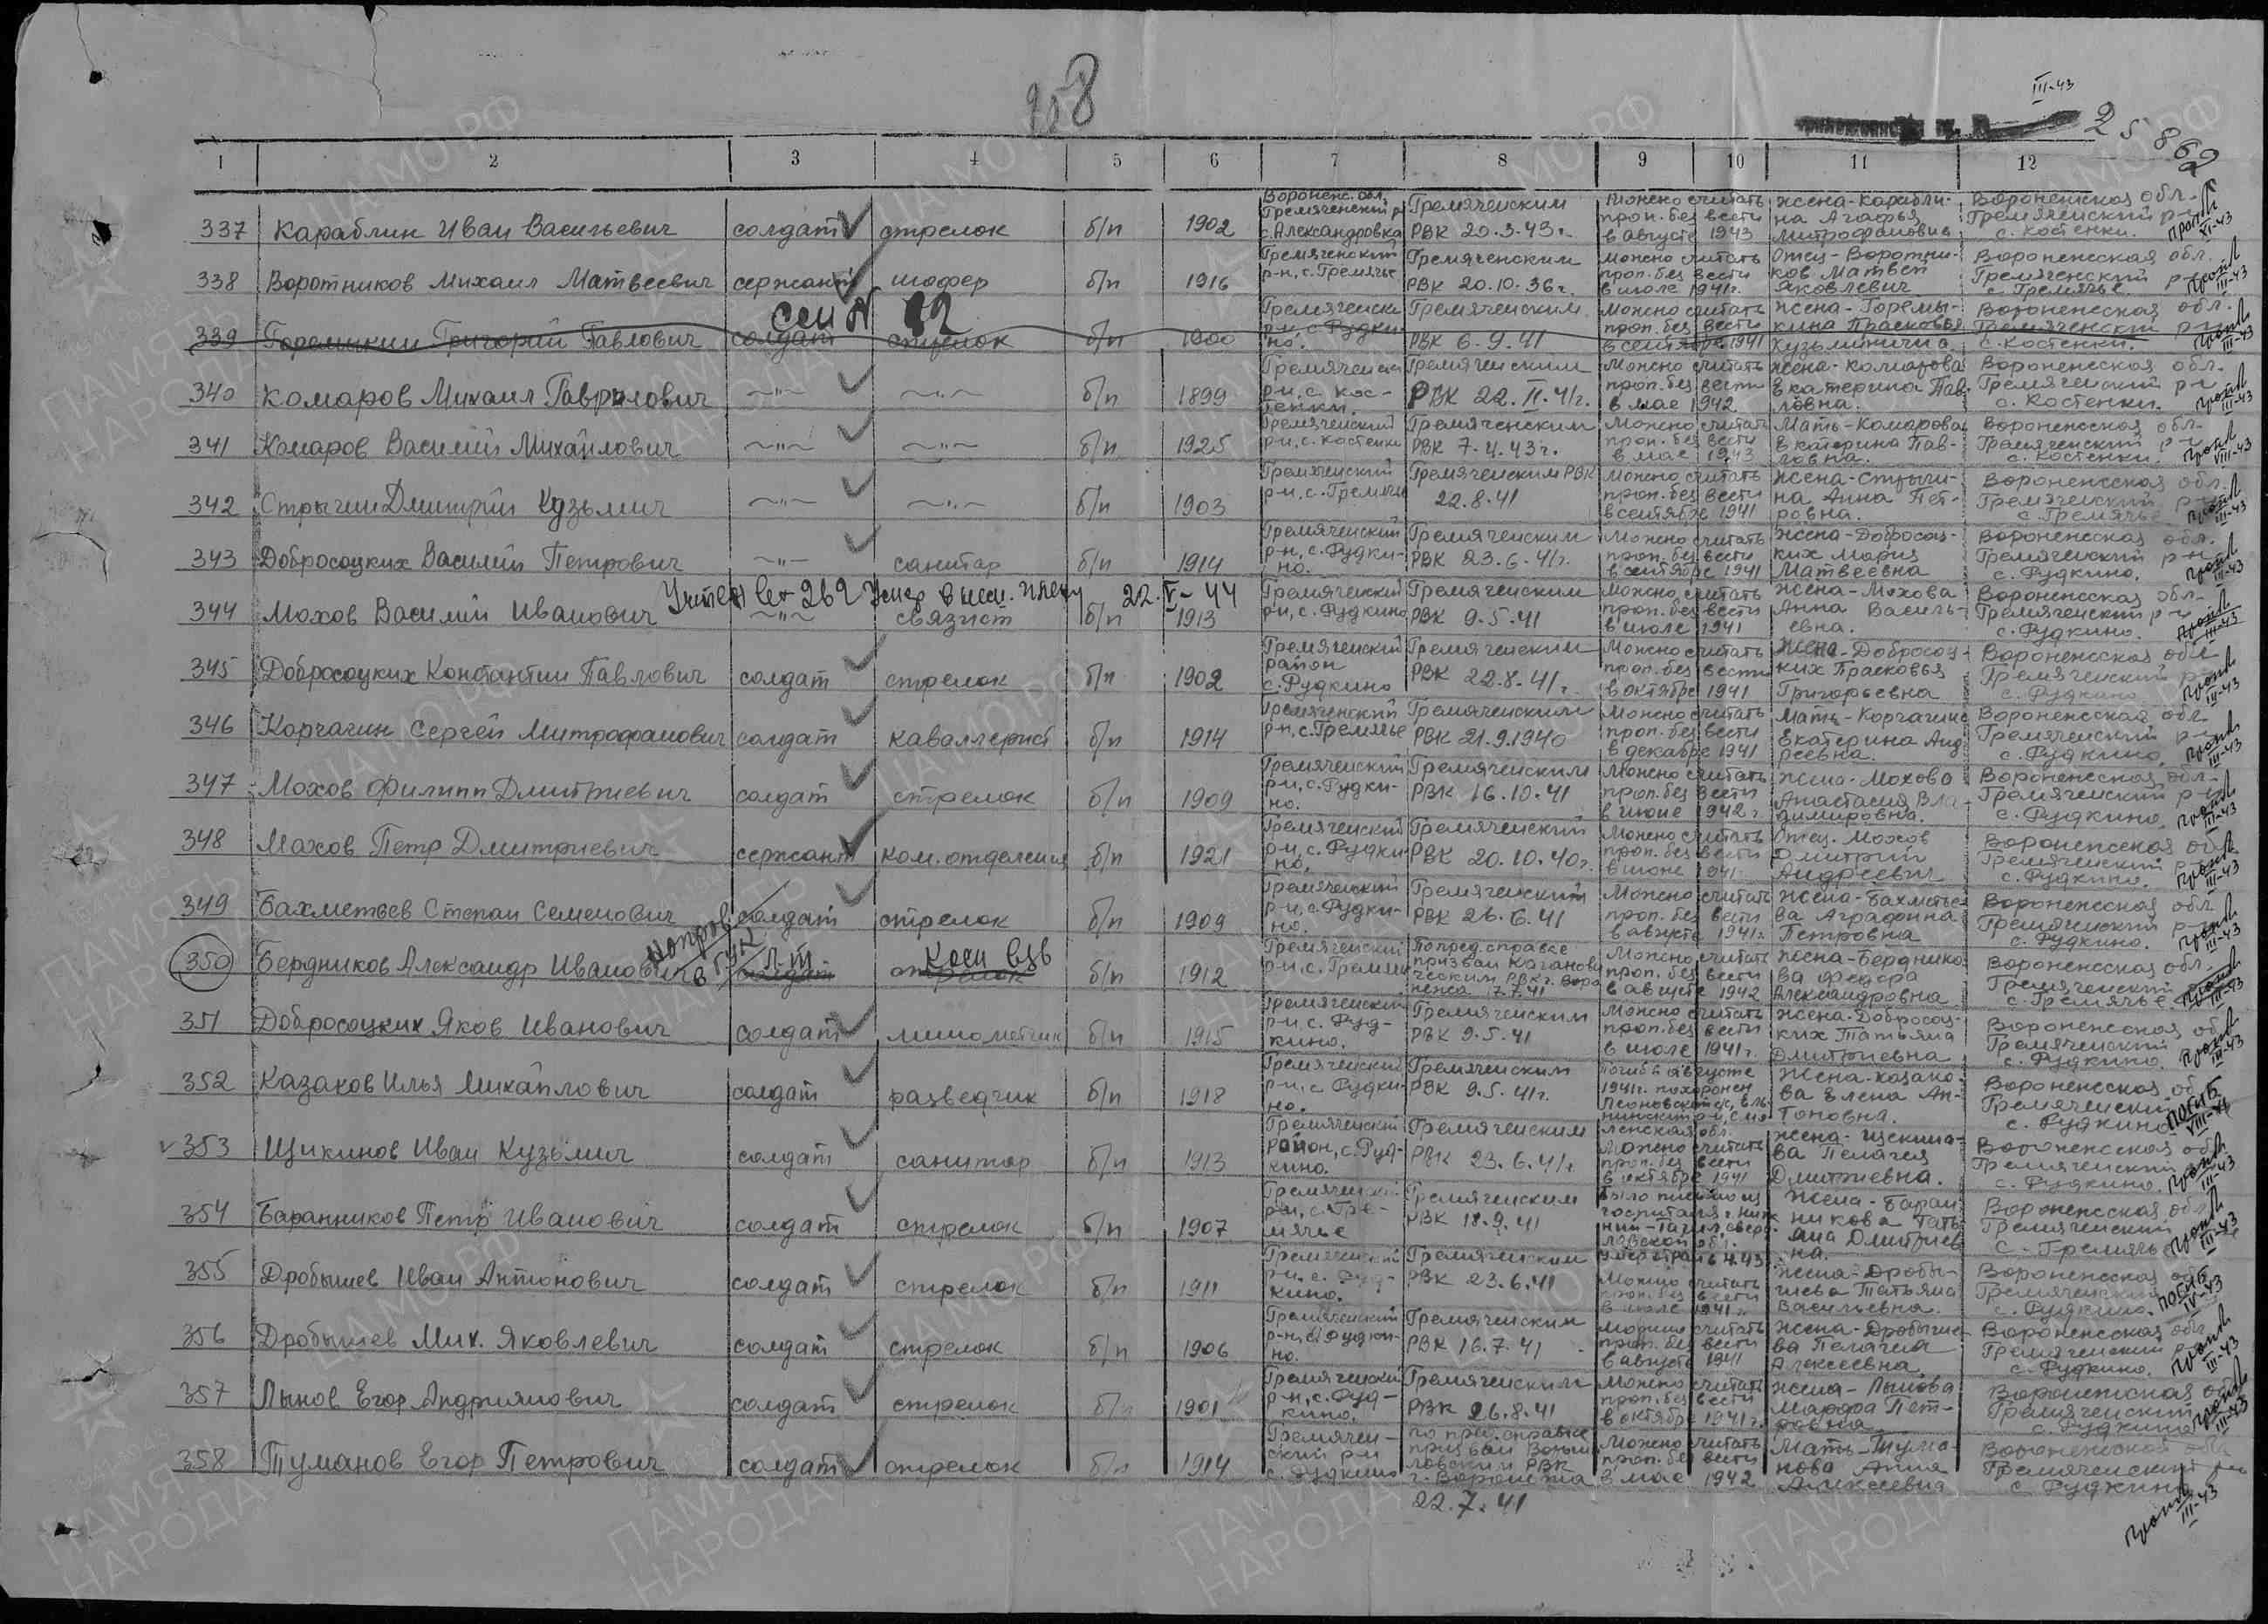 III-43
258
258
1 2 3 4 5 6 7 8 9 10 11 12
337 Караблин Иван Васильевич солдат стрелок б/п 1902 Воронеж. обл. Гремяченский р с. Александровка Гремяченским РВК 20.3.43г. Можно считать проп. без вести в августе 1943 Жена-Карабли-на Агафья Митрофановна Воронежская обл. Гремяченский р-н с. Костенки. проп XI-43
338 Воротников Михаил Матвеевич сержант шофер б/п 1916 Гремяченский р-н, с. Гремячье Гремяченским РВК 20.10.36г. Можно считать проп. без вести в июле 1941г. Отец-Воротни-ков Матвей Яковлевич Воронежская обл. Гремяченский р-н с. Гремячье. проп III-43
339 Горемыкин Григорий Павлович солдат стрелок б/п 1900 Гремяченски р-н, с. Рудки-но. Гремяченским РВК 6.9.41 Можно считать проп. без вести в сентябре 1941 Жена-Горемы-кина Прасковья Кузьминична Воронежская обл. Гремяченский р-н с. Костенки. проп III-43
340 Комаров Михаил Гаврилович -"- -"- б/п 1899 Гремяченски р-н, с. Кос-тенки. Гремяченским РВК 22.II.41г. Можно считать проп. без вести в мае 1942 Жена-Комарова Екатерина Пав-ловна. Воронежская обл. Гремяченский р-н с. Костенки. проп III-43
341 Комаров Василий Михайлович -"- -"- б/п 1925 Гремяченский р-н, с. Костенки Гремяченским РВК 7.4.43г. Можно считать проп. без вести в мае 1943 Мать-Комарова Екатерина Пав-ловна. Воронежская обл. Гремяченский р-н с. Костенки. проп VIII-43
342 Стрыгин Дмитрий Кузьмич -"- -"- б/п 1903 Гремяченский р-н, с. Гремячье Гремяченским РВК 22.8.41 Можно считать проп. без вести в сентябре 1941 Жена-Стрыги-на Анна Пет-ровна. Воронежская обл. Гремяченский р-н с. Гремячье проп III-43
343 Добросоцких Василий Петрович -"- санитар б/п 1914 Гремяченский р-н, с. Рудки-но. Гремяченским РВК 23.6.41г. Можно считать проп. без вести в сентябре 1941 Жена-Добросоц-ких Мария Матвеевна Воронежская обл. Гремяченский р-н с. Рудкино. проп III-43
Учтен 22.V-44
344 Мохов Василий Иванович -"- связист б/п 1913 Гремяченский р-н, с. Рудкино Гремяченским РВК 9.5.41 Можно считать проп. без вести в июле 1941 Жена-Мохова Анна Василь-евна. Воронежская обл. Гремяченский р-н с. Рудкино. проп III-43
345 Добросоцких Константин Павлович солдат стрелок б/п 1902 Гремяченский район с. Рудкино Гремяченским РВК 22.8.41г. Можно считать проп. без вести в октябре 1941 Жена-Добросоц-ких Прасковья Григорьевна Воронежская обл Гремяченский р-н с. Рудкино проп III-43
346 Корчагин Сергей Митрофанович солдат кавалерист б/п 1914 Гремяченский р-н, с. Гремячье Гремяченским РВК 21.9.1940 Можно считать проп. без вести в декабре 1941 Мать-Корчагина Екатерина Анд-реевна. Воронежская обл Гремяченский р-н с. Рудкино. проп III-43
347 Мохов Филипп Дмитриевич солдат стрелок б/п 1909 Гремяченский р-н, с. Рудки-но. Гремяченским РВК 16.10.41 Можно считать проп. без вести в июне 1942г. Жена-Мохова Анастасия Вла-димировна. Воронежская обл. Гремяченский р-н с. Рудкино. проп III-43
348 Махов Петр Дмитриевич сержант ком. отделения б/п 1921 Гремяченский р-н, с. Рудки-но. Гремяченский РВК 20.10.40г. Можно считать проп. без вести в июне 1941 Отец-Мохов Дмитрий Андреевич Воронежская обл Гремяченский р-н с. Рудкино. проп III-43
349 Бахметьев Степан Семенович солдат стрелок б/п 1909 Гремяченский р-н, с. Рудки-но. Гремяченский РВК 26.6.41 Можно считать проп. без вести в августе 1941г. Жена-Бахметье-ва Аграфена Петровна Воронежская обл Гремяченский р-н с. Рудкино. проп III-43
350 Бердников Александр Иванович солдат л-т стрелок Ком взв б/п 1912 Гремяченский р-н, с. Гремячье По пред. справке призван Каганови-ческим РВК г. Воро-нежа 7.7.41 Можно считать проп. без вести в августе 1942 Жена-Берднико-ва Федора Александровна Воронежская обл. Гремяченский с. Гремячье проп III-43
351 Добросоцких Яков Иванович солдат минометчик б/п 1915 Гремяченский р-н с. Руд-кино. Гремяченским РВК 9.5.41 Можно считать проп. без вести в июле 1941г. Жена-Добросоц-ких Татьяна Дмитриевна Воронежская об Гремяченский с. Рудкино. проп III-43
352 Казаков Илья Михайлович солдат разведчик б/п 1918 Гремяченский р-н, с. Рудки-но. Гремяченским РВК 9.5.41г. Погиб в августе 1941г. похоронен Жена-Казако-ва Елена Ан-тоновна. Воронежская об Гремяченский с. Рудкино погиб VIII-41
353 Щикинов Иван Кузьмич солдат санитар б/п 1913 Гремяченский район, с. Руд-кино. Гремяченским РВК 23.6.41г. Можно считать проп. без вести в октябре 1941 Жена-Щекино-ва Пелагея Дмитриевна. Воронежская об Гремяченский с. Рудкино. проп III-43
354 Баранников Петр Иванович солдат стрелок б/п 1907 Гремяченский р-н, с. Гре-мячье Гремяченским РВК 18.9.41 Было письмо из госпиталя г. Ниж-ний-Тагил, сверд-ловской об. Жена-Баран-никова Тать-яна Дмитриев-на. Воронежская об Гремяченский с. Гремячье проп III-43
355 Дробышев Иван Антонович солдат стрелок б/п 1911 Гремяченский р-н, с. Руд-кино. Гремяченским РВК 23.6.41 Можно считать проп. без вести в июле 1941г. Жена-Дробы-шева Татьяна Васильевна. Воронежская об Гремяченский с. Рудкино. погиб IV-43
356 Дробышев Мих. Яковлевич солдат стрелок б/п 1906 Гремяченский р-н, с. Рудки-но. Гремяченским РВК 16.7.41 Можно считать проп. без вести в августе 1941 Жена-Дробыше-ва Пелагея Алексеевна Воронежская об Гремяченский р-н с. Рудкино. проп III-43
357 Лынов Егор Андриянович солдат стрелок б/п 1901 Гремяченский р-н, с. Руд-кино. Гремяченским РВК 26.8.41 Можно считать проп. без вести в октябре 1941г. Жена-Лынова Марфа Пет-ровна Воронежская об Гремяченский с. Рудкино проп III-43
358 Туманов Егор Петрович солдат стрелок б/п 1914 Гремячен-ский р-н с. Рудкино По пред. справке призван РВК г. Воронежа 22.7.41 Можно считать проп. без вести в мае 1942 Мать-Тума-нова Анна Алексеевна Воронежская обл Гремяченский р-н с Рудкино проп III-43